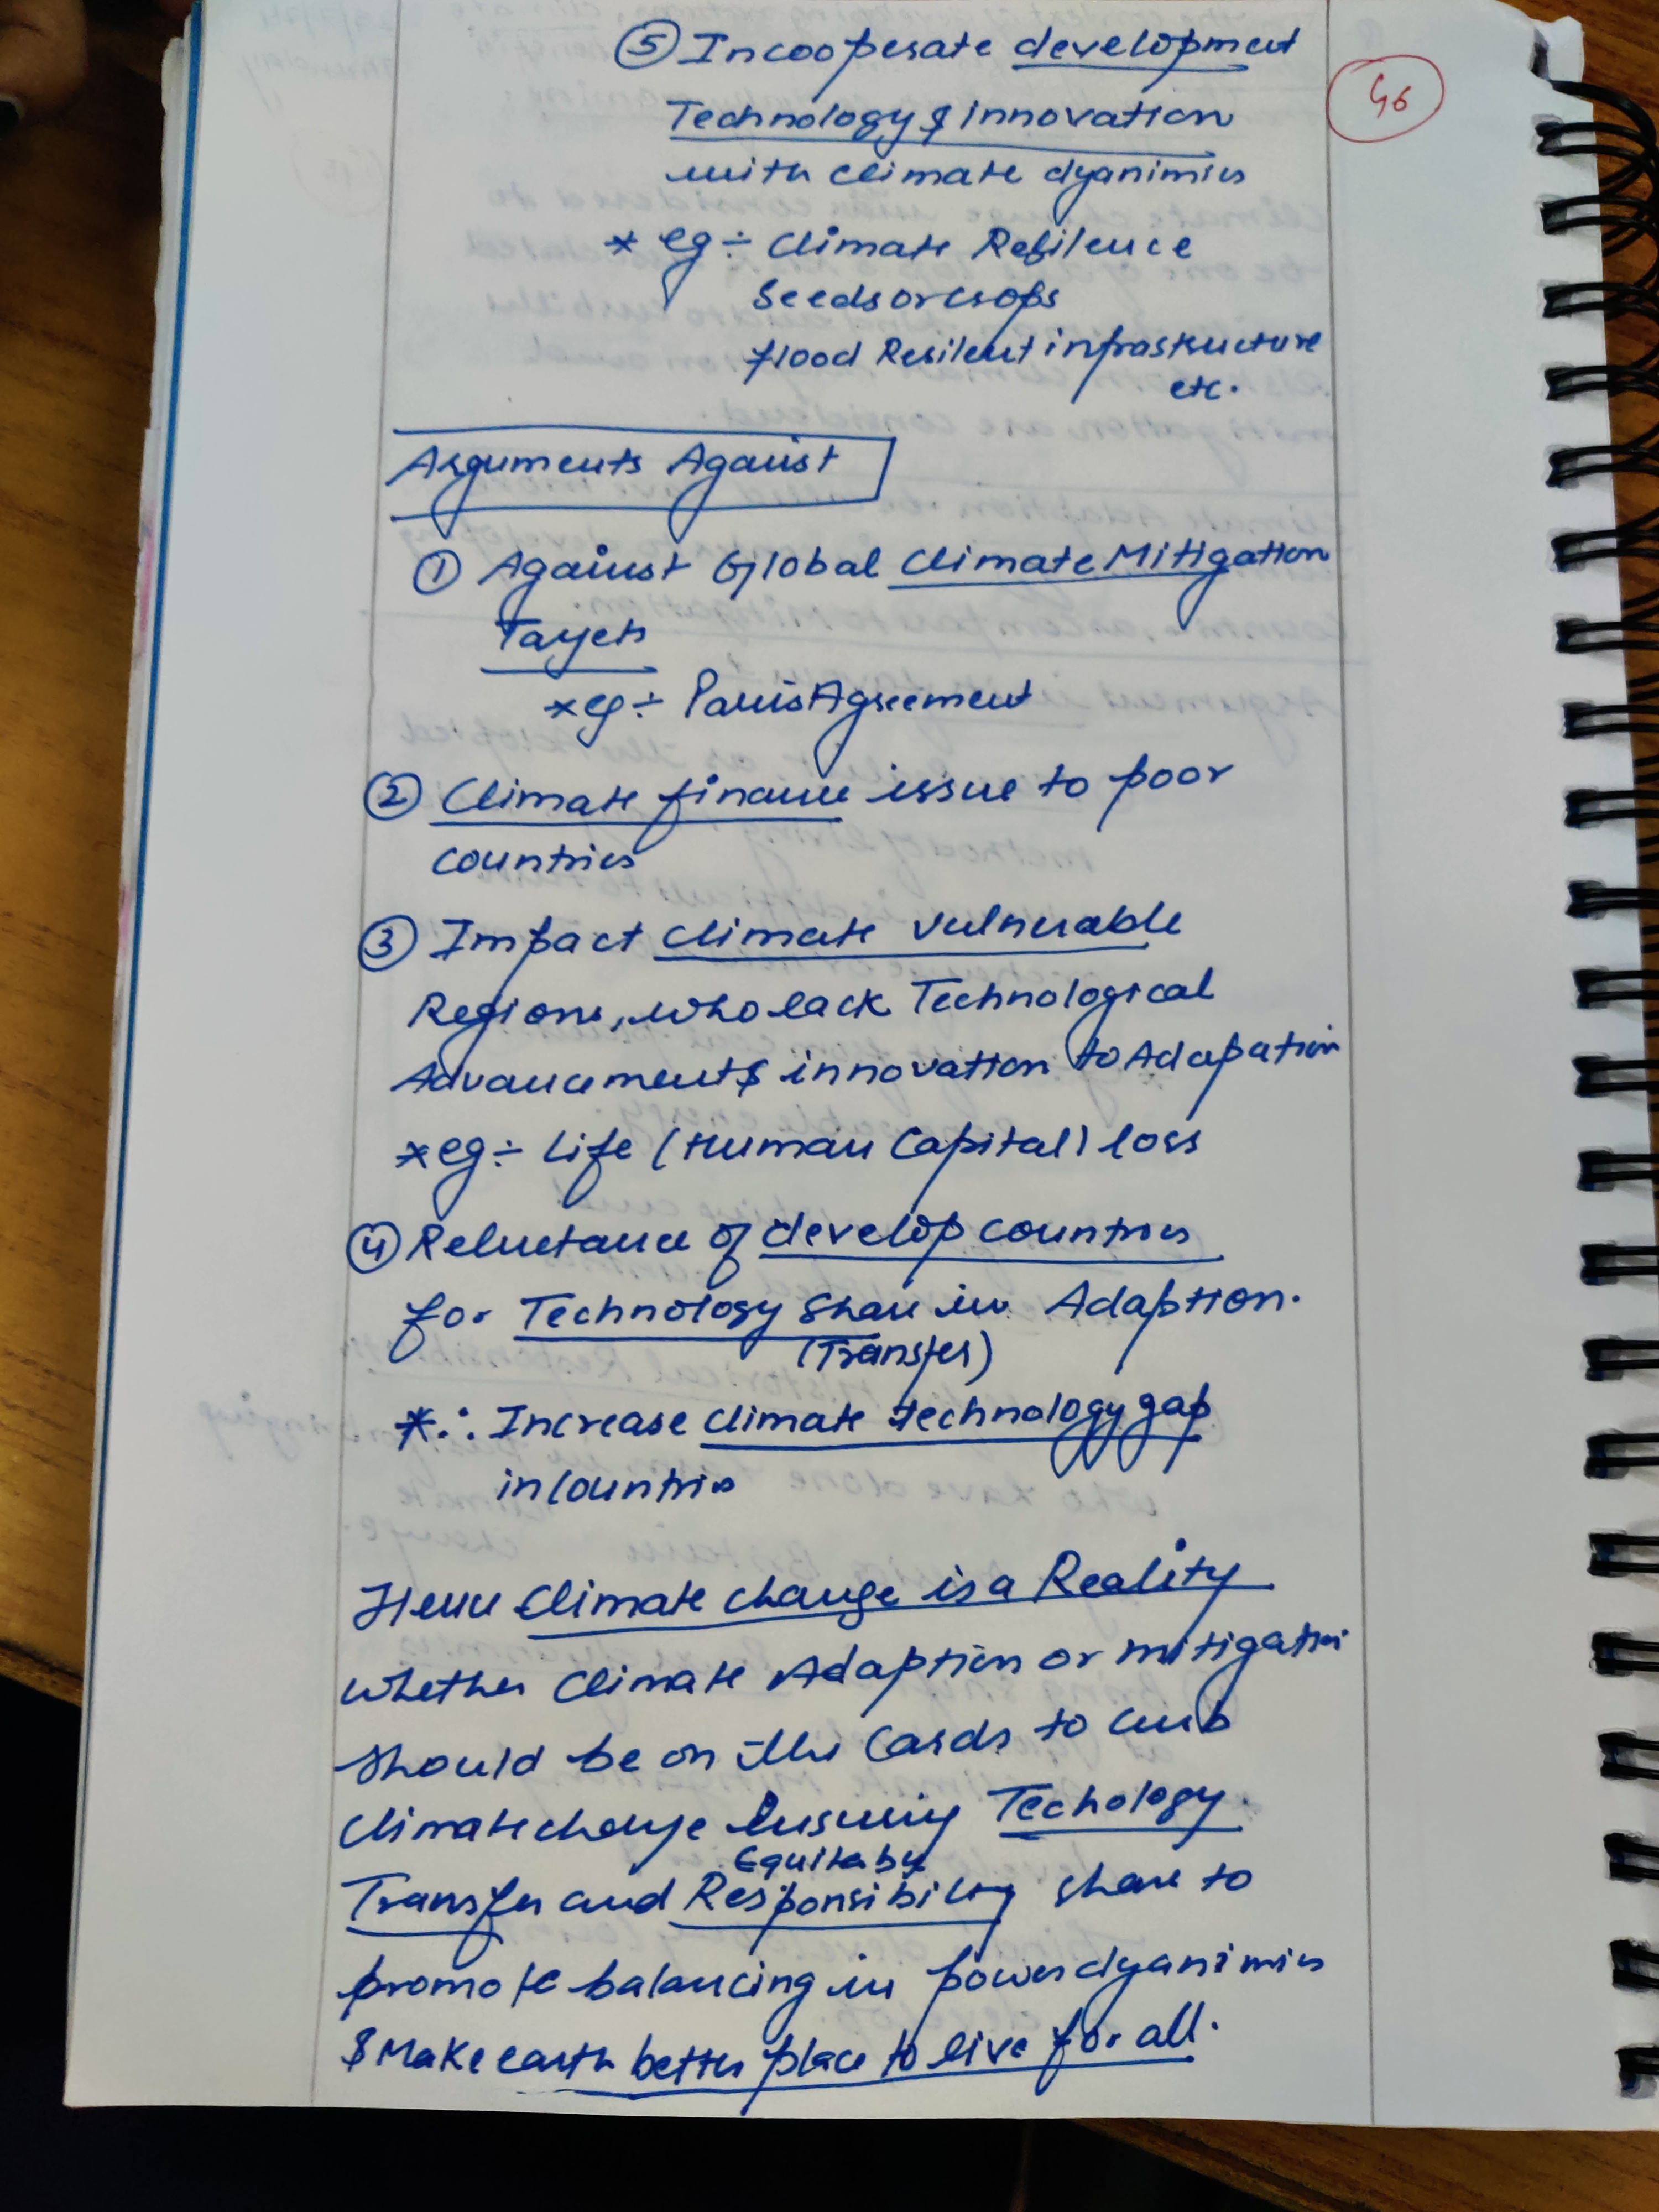 ⑤ Incooperate development
46
Technology & innovation
with climate dyanimics
* eg ÷ Climate Resilence
Seeds or crops
flood Resilent infrastructure
etc.
Arguments Against
① Against Global Climate Mitigation
Targets
* eg ÷ Paris Agreement
② Climate finance issue to poor
countries
③ Impact climate vulnerable
Regions, who lack Technological
Advancement & innovation to Adapation
* eg ÷ Life (Human Capital) loss
④ Reluctance of develop countries
for Technology Share in Adaption.
(Transfer)
* ∴ Increase climate technology gap
in countries
Hence Climate change is a Reality
whether Climate Adaption or mitigation
should be on the Cards to curb
climate change Ensuring Techology.
Equitaby
Transfer and Responsibility share to
promote balancing in power dyanimics
& Make earth better place to live for all.